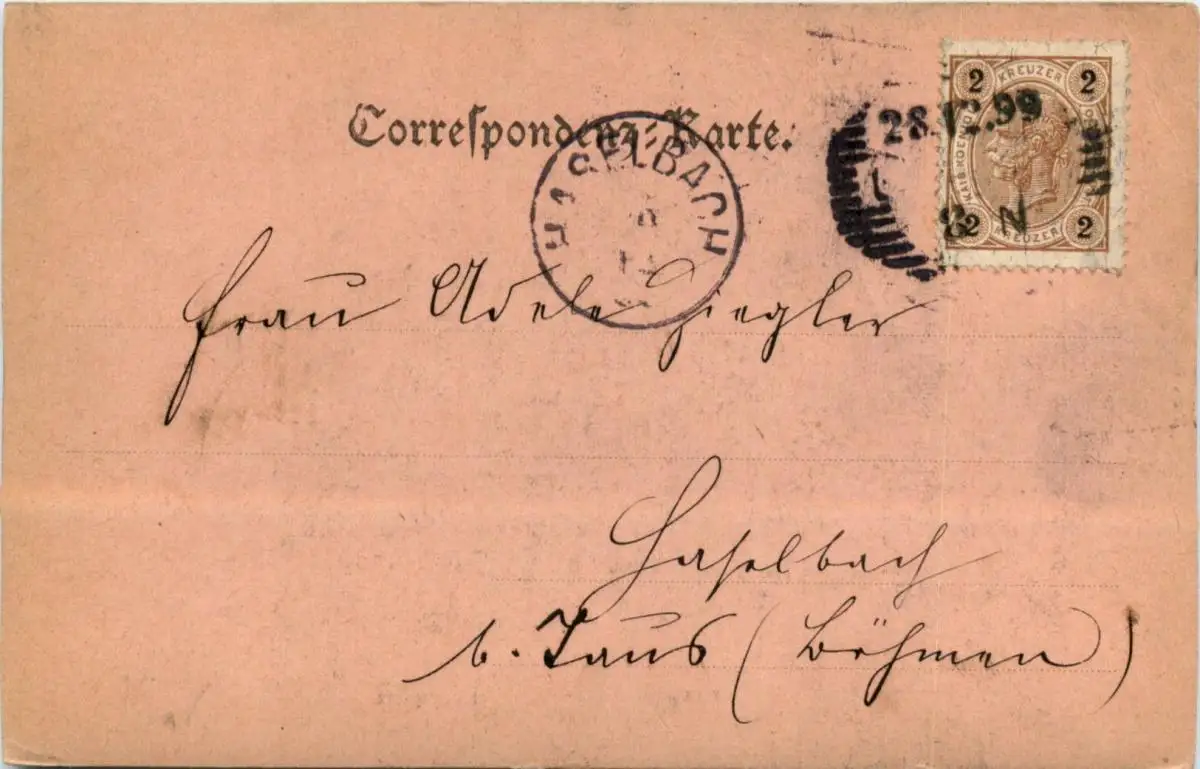 Correspondenz-Karte.
2 KREUZER 2
28.VI.99
2 KREUZER 2
8 N
HASELBACH
Frau Adele Ziegler
Haselbach
b. Taus (Böhmen)